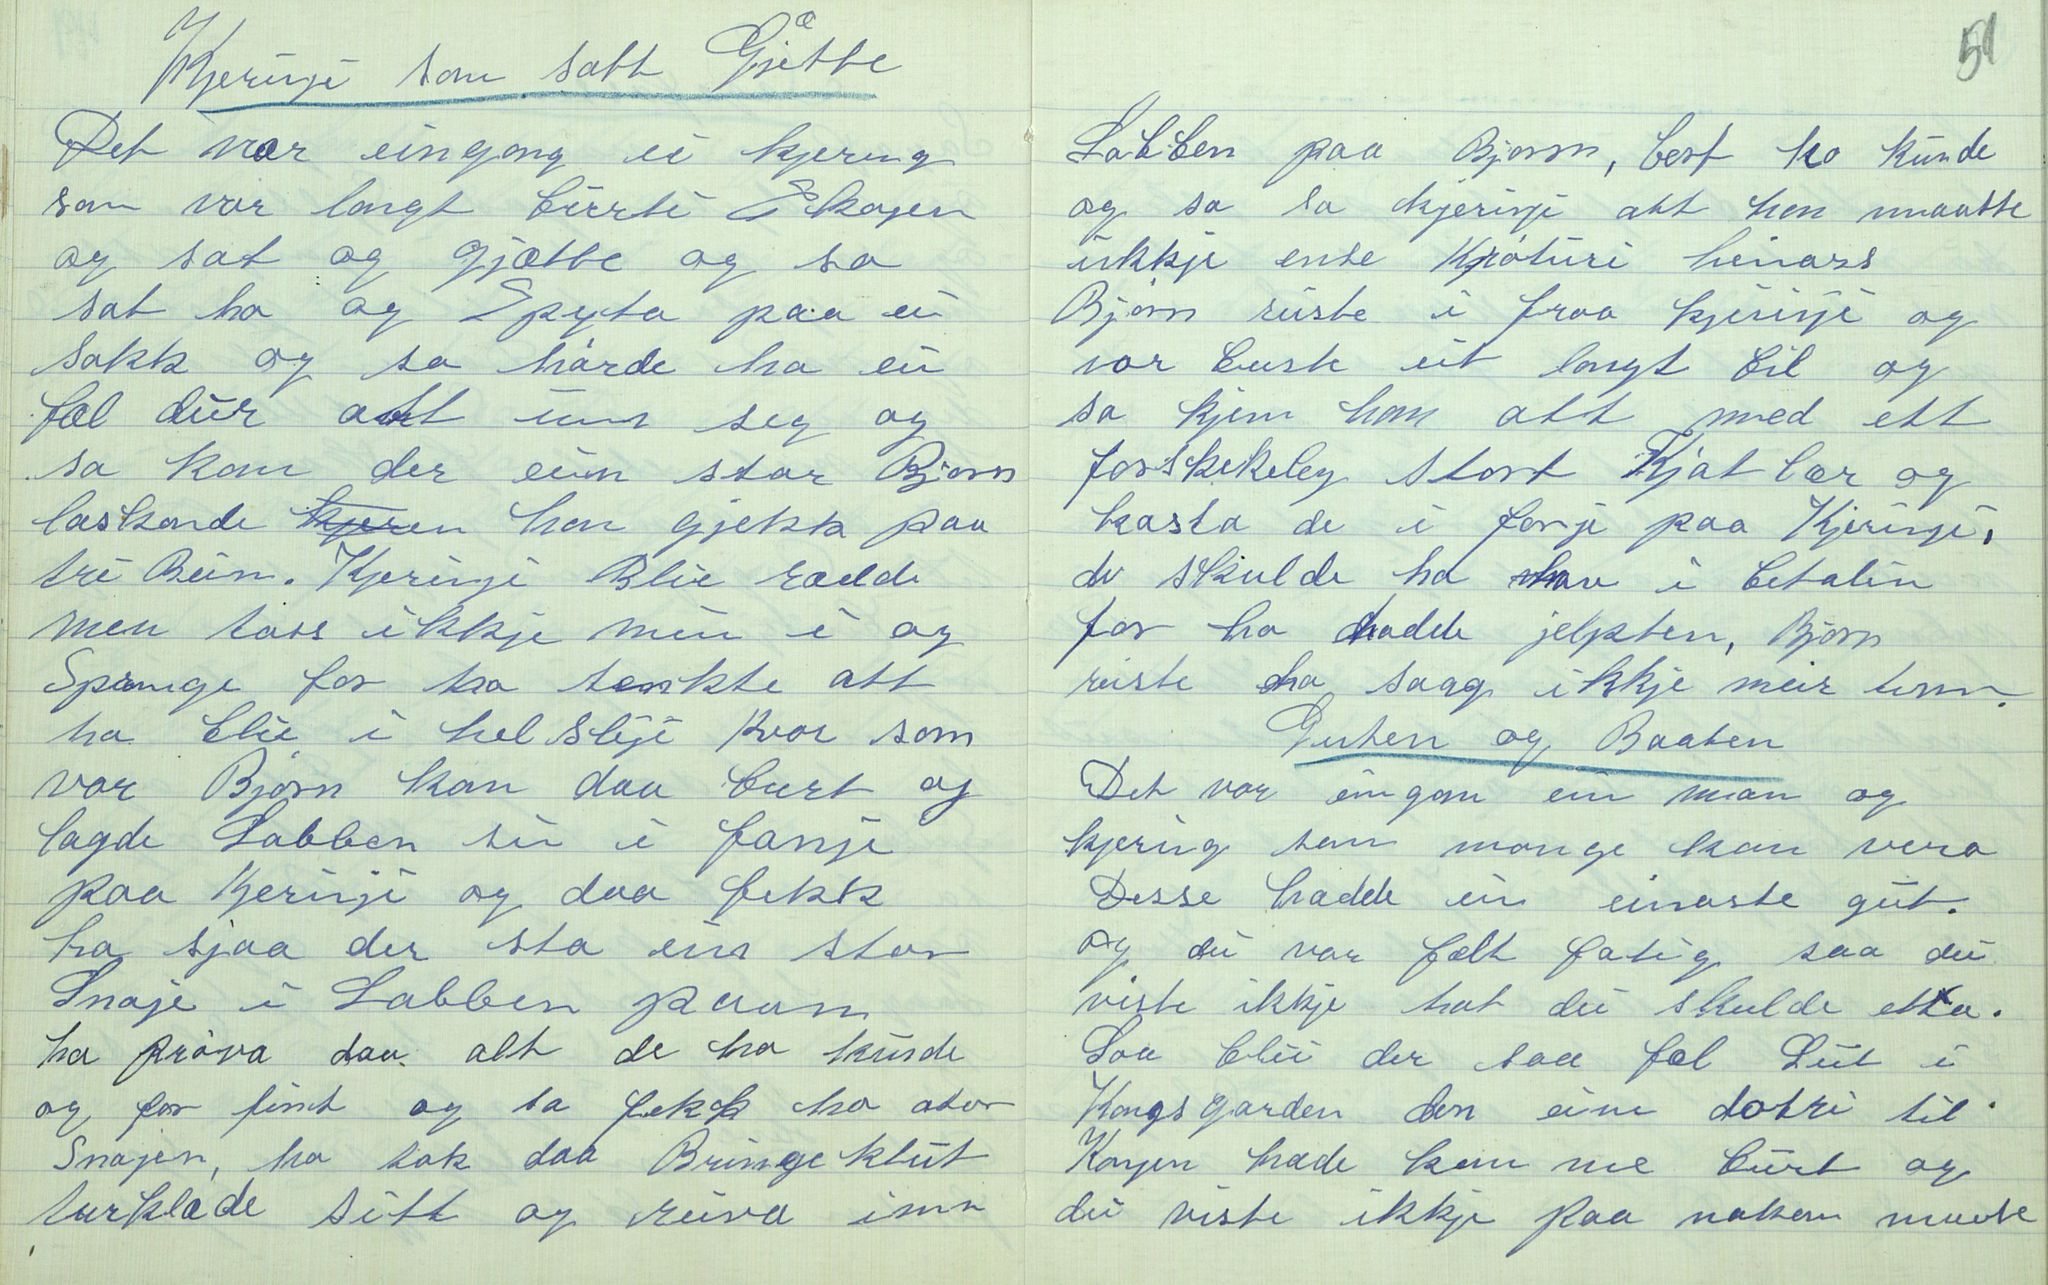 Kjeringi som satt Gjætte
Det var eingong ei kjering
som var langt burti Skogen
og sat og gjætte og so
sat ho og Spyta paa ein
sokk og so hørde ho ein
fæl dur att um seg og
so kom der ein stor Bjørn
laskande kjeren han gjekk paa
tri Bein. Kjeringi Blie rædde
men toss ikkje min i og
Springe for ho tenkte att
ho blie i hel sliji kvor som
var Bjørn kom daa burt og
lagde Labben sin i fanje
paa Kjeringi og daa fekk
ho sjaa der sto ein stor
Snoje i Labben paam
ho prøva daa alt de ho kunde
og for fint og so fekk ho ator
Snojen, ho tok daa Bringeklut
turklæde sitt og reiva inn
51
Labben paa Bjørn, best ho kunde
og so sa kjeringi att han maatte
ikkje ente Krøturi hinars
Bjørn reiste i fraa kjeringi og
var burte eit langt bil og
so kjem han att med ett
forskrekeleg stort Kjøtlær og
kasta de i fanji paa Kjeringi,
de skulde ho hav i betalin
for ho hadde jelpten, Bjørn
reiste ho saag ikkje meir tenn.
Guten og Baaten
Det var eingon ein man og
kjering som monge kan vera
Desse hadde ein einaste gut.
og dei var fælt fatig saa dei
viste ikkje hat dei skulde etta.
Saa blei der saa fæl Lut i
Kongsgarden den eine dotri til
Kongen hade kom me burt og
dei viste ikkje paa nokon maate